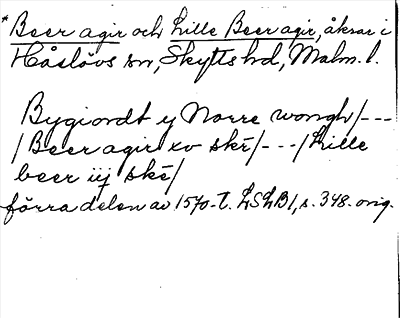 * Beer agir och Lille Beer agir, åkrar i
Håslövs sn, Skytts hd, Malm. l.
Bygiordt y Norre wongh/---
/Beer agir xv skē/---/Lille
beer iij skē/
förra delen av 1570-t. LSLB1, s. 348. orig.